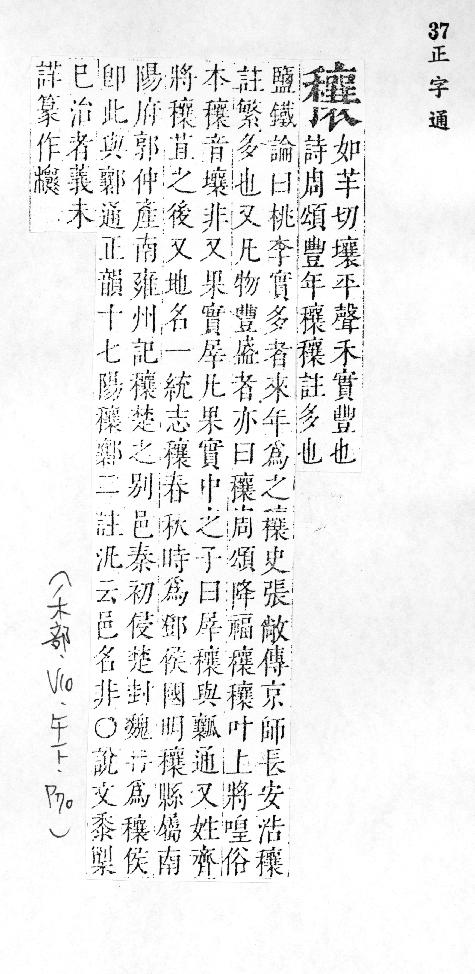 37
正字通
穰
如羊切壤平聲禾實豐也
詩周頌豐年穰穰註多也
鹽鐵論曰桃李實多者來年爲之穰史張敞傳京師長安浩穰
註繁多也又凡物豐盛者亦曰穰周頌降福穰穰叶上將喤俗
本穰音壤非又果實犀凡果實中之子曰犀穰與瓤通又姓齊
將穰苴之後又地名一統志穰春秋時爲鄧侯國明穰縣僑南
陽府郭仲產南雍州記穰楚之別邑秦初侵楚封魏冉爲穰侯
卽此與通正韻十七陽穰二註汎云邑名非○說文黍
已治者義未
詳篆作
(禾部.V10.午下.P70)